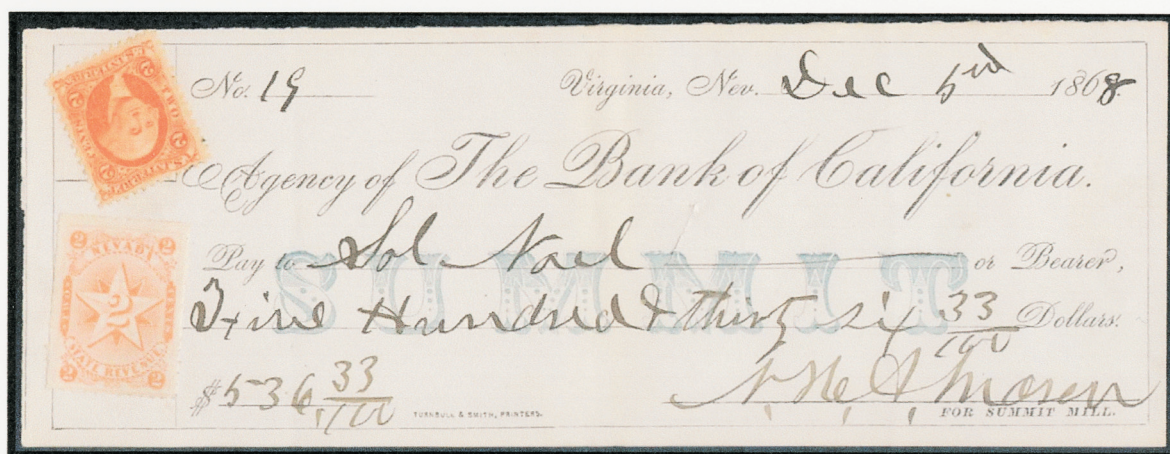 No. 19 Virginia, Nev. Dec 5th 1868
Agency of The Bank of California.
Pay to Sol Noel or Bearer,
SUMMIT
Five Hundred & thirty six 33/100 Dollars.
$536, 33/100
TURNBULL & SMITH, PRINTERS.
FOR SUMMIT MILL.
2 TWO CENTS 2
2 NEVADA 2
2
2 STATE REVENUE 2